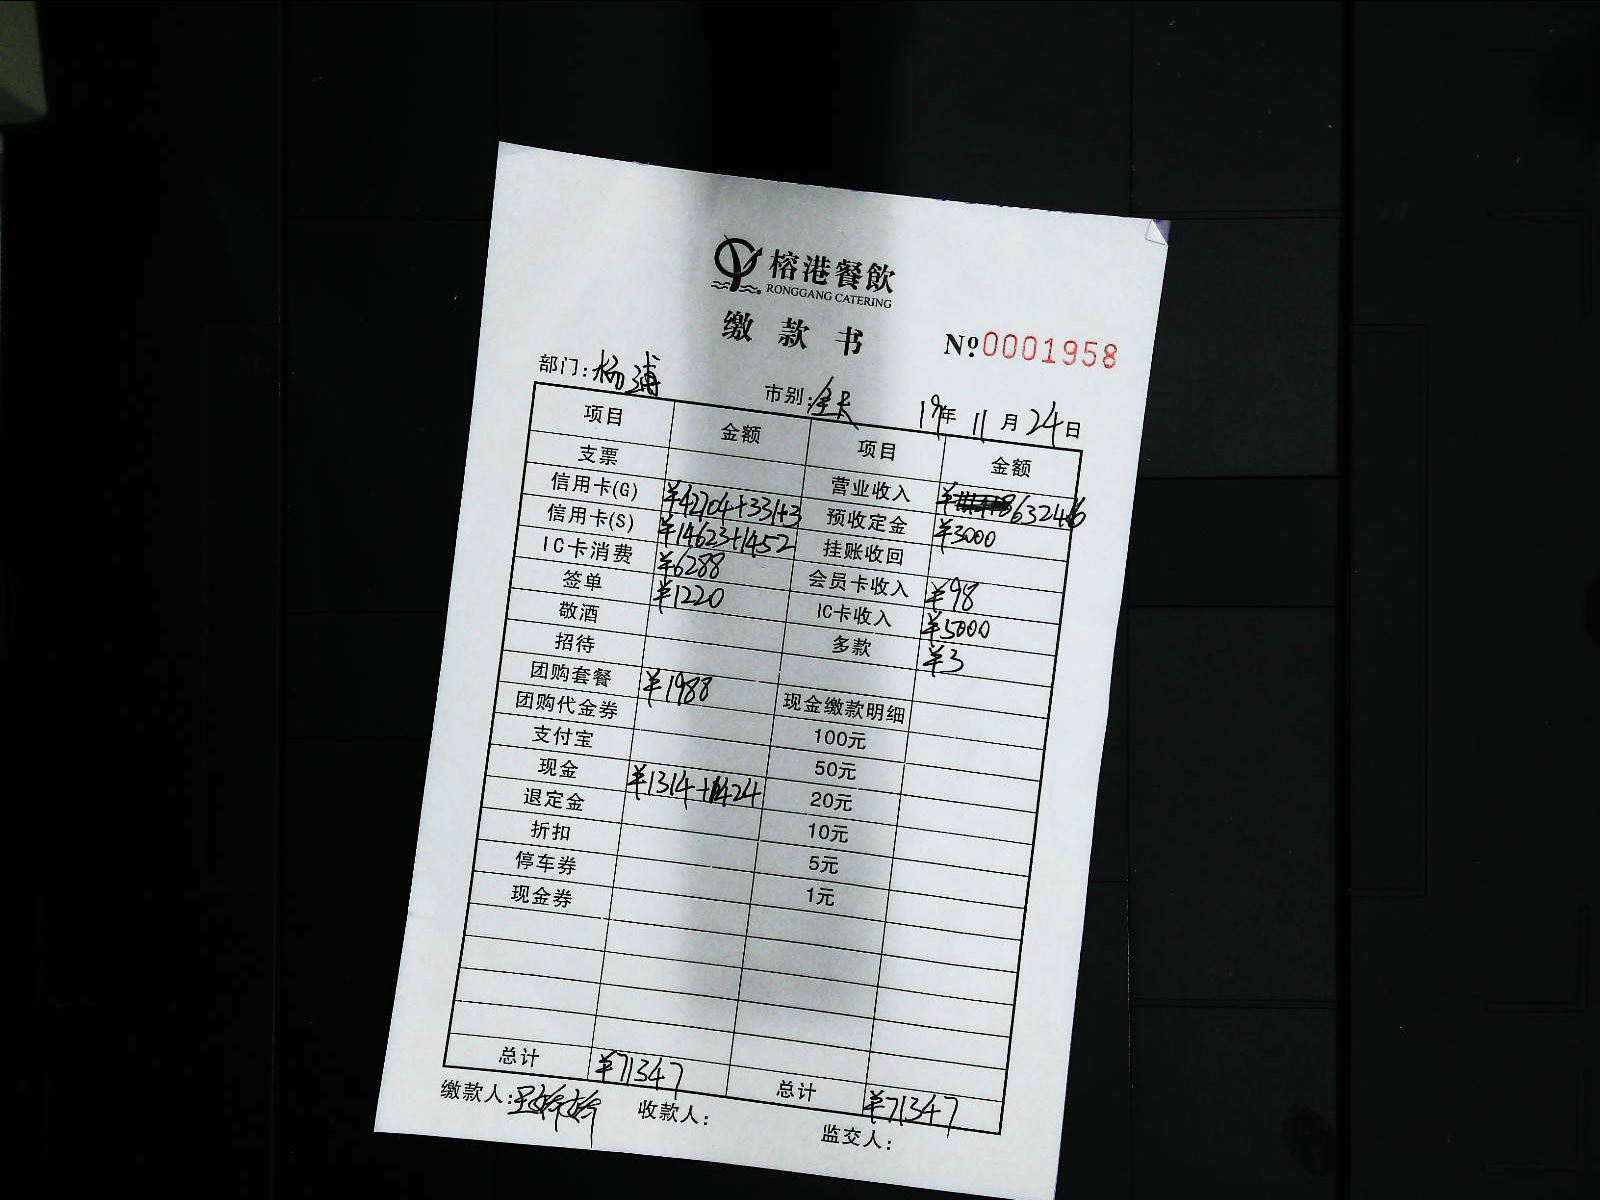 榕港餐飲
RONGGANG CATERING
缴款书 №0001958
部门:杨浦 市别: 19年 11月 24日
项目 金额 项目 金额
支票 营业收入 ¥63246
信用卡(G) ¥42704+331+3 预收定金 ¥3000
信用卡(S) ¥14623+1452 挂账收回
IC卡消费 ¥6288 会员卡收入 ¥98
签单 ¥1220 IC卡收入 ¥5000
敬酒 多款 ¥3
招待
团购套餐 ¥1988 现金缴款明细
团购代金券 100元
支付宝 50元
现金 ¥1314+1424 20元
退定金 10元
折扣 5元
停车券 1元
现金券
总计 ¥71347 总计 ¥71347
缴款人: 收款人: 监交人: